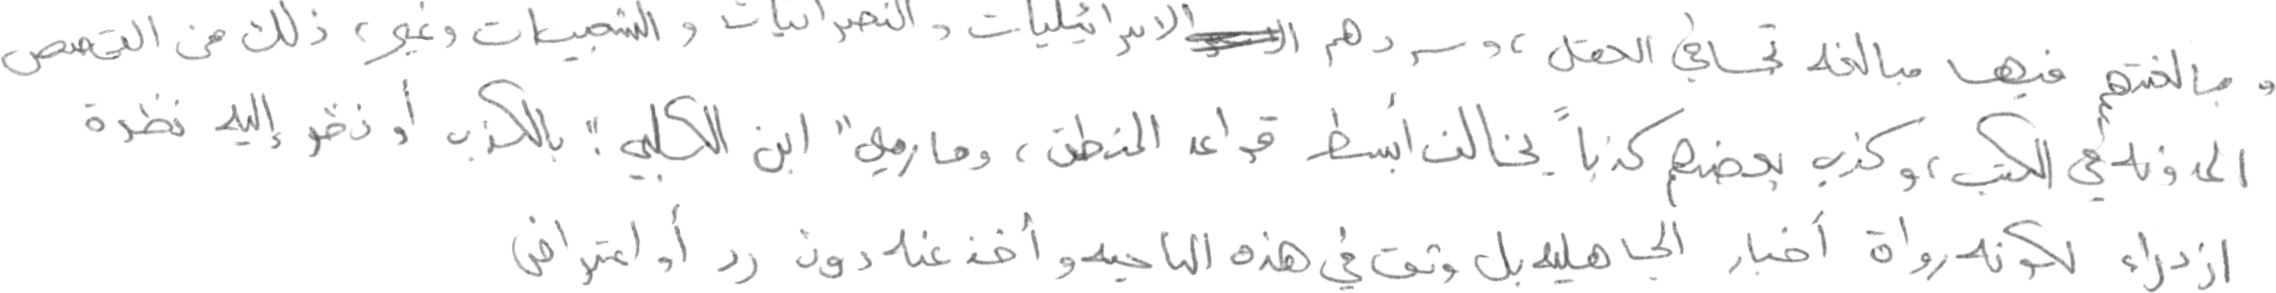 ومبالغتهم فيها مبالغه تجافي العقل، وسردهم الاسرائيليات والنصرانيات والشعبيات وغير، ذلك من القصص
المدونه في الكتب، وكذب بعضهم كذباً يخالف أبسط قواعد المنطق، وما رمي "ابن الكلبي" بالكذب أو نظر إليه نظرة
ازدراء لكونه رواة أخبار الجاهليه بل وثق في هذه الناحيه وأخذ عنه دون رد أو اعتراض